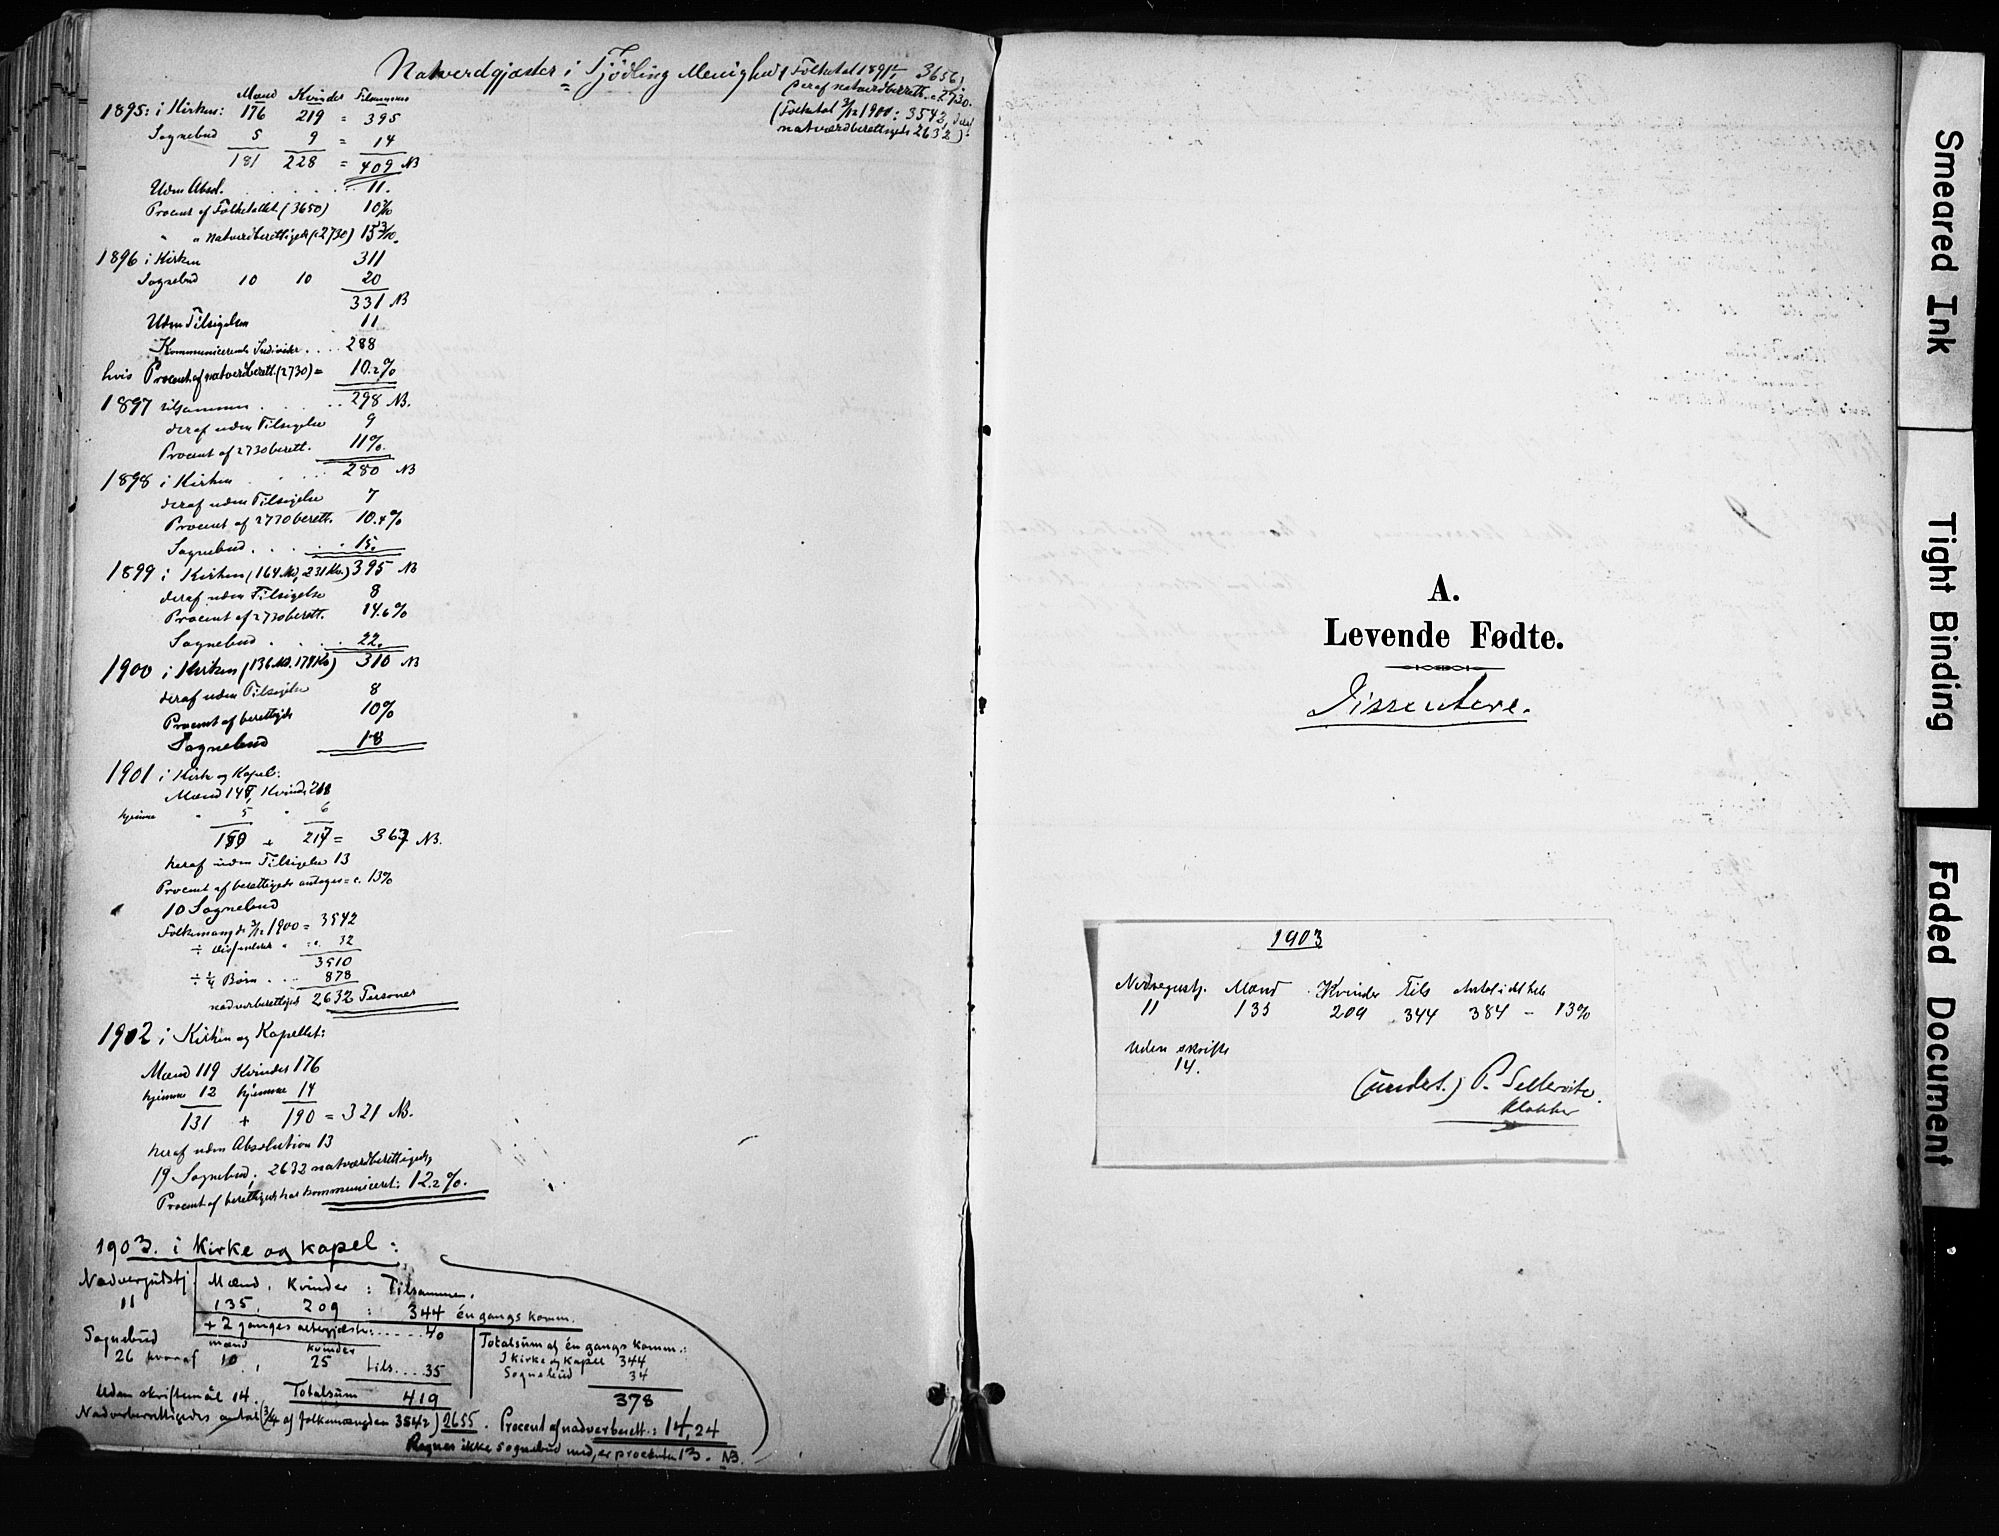 Natverdgjæster i Tjødling Menighed (Folketal 1891/1 3656,
deraf natverdberett. c. 2730.
(Folketal 3/12 1900: 3542, deraf
natværdberettigede 2632).
Mænd Kvinder Tilsammen
1895: i Kirken: 176 219 = 395
Sognebud 5 9 = 14
181 228 = 409 NB
Uden Absol. . . . . . 11.
Procent af Folketallet (3650)
" " natverdberettigede (2730)
1896 i Kirken 311
Sognebud 10 10 20
331 NB
Uden Tilsigelse 11
Kommunicerende Individer . . . . 288
hvis Procent af natverdberett. (2730) = 10.2%
1897 tilsammen . . . . . 298 NB.
deraf uden Tilsigelse 9
Procent af 2730 berett. 11%.
1898 i Kirken . . . . 280 NB
deraf uden Tilsigelse 7
Procent af 2730 berett. 10.4%
Sognebud . . . . . . 15.
1899 i Kirken (164 M., 231 Kv.) 395 NB
deraf uden Tilsigelse 8
Procent af 2730 berett. 14.6%
Sognebud . . . . . 22.
1900 i Kirken (136 M. 174 Kv) 310 NB
deraf uden Tilsigelse 8
Procent af berettigede 10%
Sognebud 18
1901 i Kirke og Kapel:
Mænd 145, Kvinder
hjemme " 5 " 6
150 + 217 = 367 NB.
heraf uden Tilsigelse 13
Procent af berettigede antages = c. 13%
10 Sognebud
Folkemængde 3/12 1900 = 3542
÷ dissenter " = c. 32
3510
÷ ¼ Børn . . . 878
nadverberettiget 2632 Personer
1902 i Kirken og Kapellet:
Mænd 119 Kvinder 176
hjemme 12 hjemme 14
131 + 190 = 321 NB.
heraf uden Absolution 13
19 Sognebud, 2632 natværdberettigede,
Procent af berettigede har kommuniceret: 12.2%.
1903. i Kirke og kapel:
Nadvergudstj. Mænd, Kvinder : Tilsammen.
11 135, 209 : 344 én gangs komm.
+ 2 ganges altergjæster: . . . . . 40
Sognebud mænd kvinder
26 hvoraf 10, 25 tils. . . . 35
Totalsum af én gangs komm.:
I kirke og kapel 344
Sognebud 34
378
Uden skriftemål 14. Totalsum 419
Nadverberettigedes antal (3/4 af folkemængden 3542) 2655. Procent af nadverberett.: 14,24
Regnes ikke sognebud med, er procenten 13. NB.
A.
Levende Fødte.
Dissentere.
1903
Nadvergustj. Mænd Kvinder Tils Antal i det hele
11 135 209 344 384 – 13%
Uden skrifte
14.
(undert.) P.
Klokker
Smeared Ink
Tight Binding
Faded Document